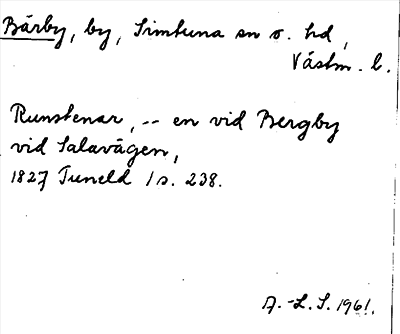 Bärby, by, Simtuna sn o. hd,
Västm. l.
Runstenar, -- en vid Bergby
vid Salavägen,
1827 Tuneld 1 s. 238.
A.-L.S. 1961.